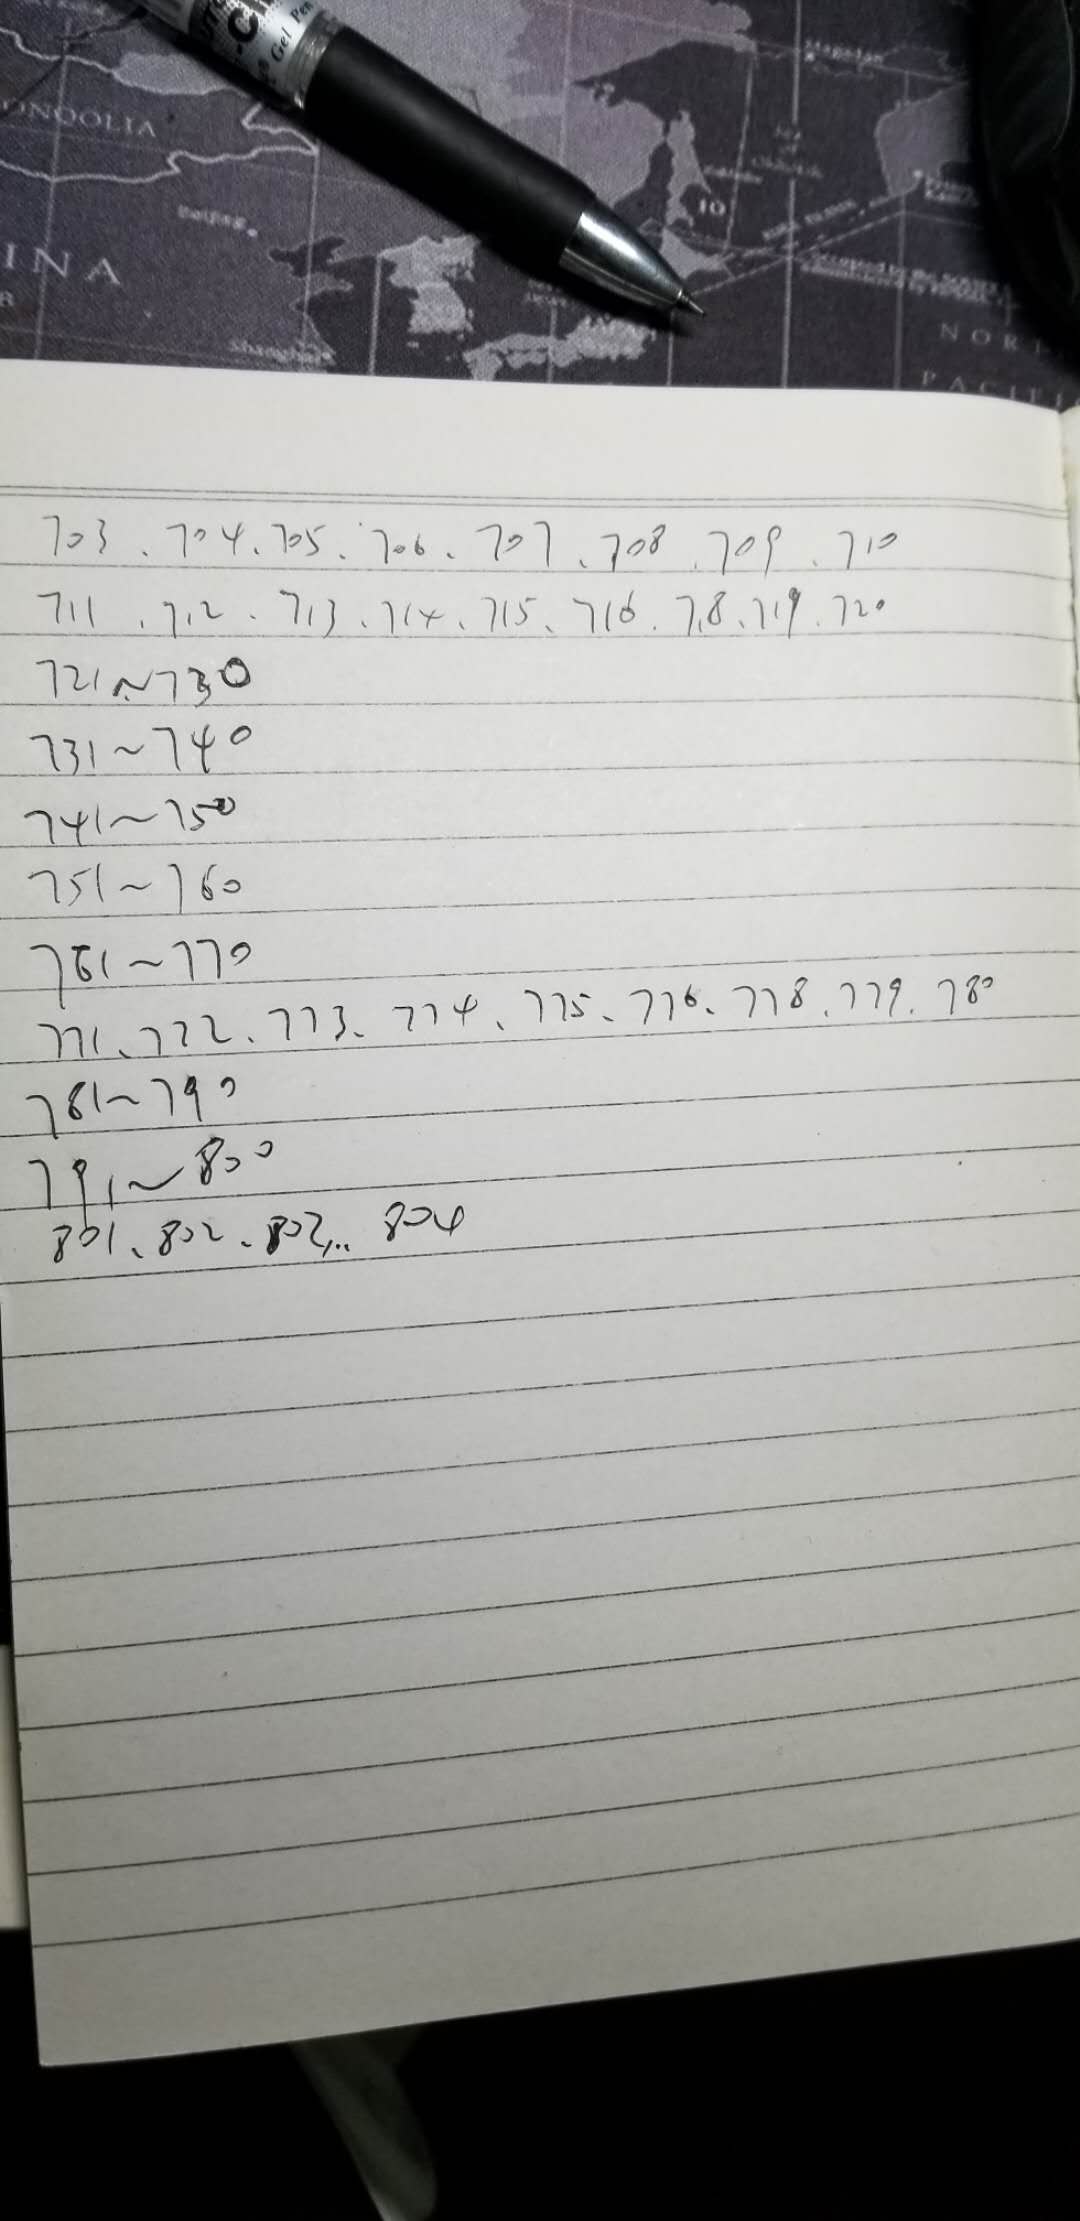 Gel Pen
MONGOLIA
Magadan
Beijing
10
INA
Shanghai
NOR
PACIFI
703、704、705、706、707、708、709、710
711、712、713、714、715、716、718、719、720
721~730
731~740
741~750
751~760
761~770
771、772、773、774、775、776、778、779、780
781~790
791~800
801、802、803... 804